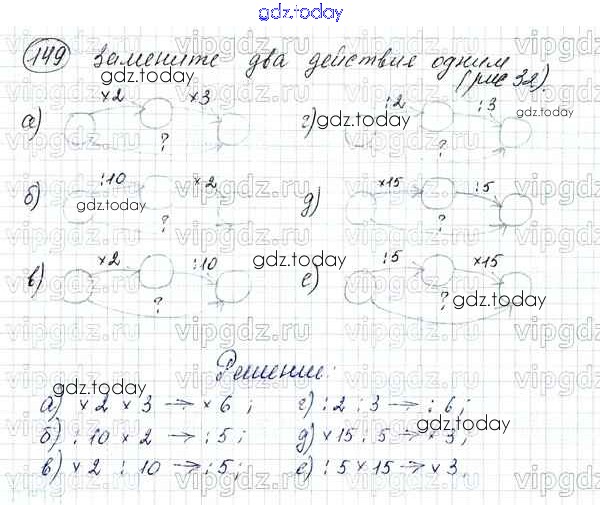 gdz.today
149 Замените два действия одним
gdz.today (рис 32).
а) ×2 ×3 ? г) :2 :3 ?
gdz.today gdz.today
б) :10 ×2 ? д) ×15 :5 ?
gdz.today
в) ×2 :10 ? е) :5 ×15 ?
gdz.today gdz.today
vipgdz.ru
Решение:
gdz.today
а) ×2 ×3 → ×6; г) :2 :3 → :6;
б) :10 ×2 → :5; д) ×15 :5 → ×3;
gdz.today
в) ×2 :10 → :5; е) :5 ×15 → ×3.